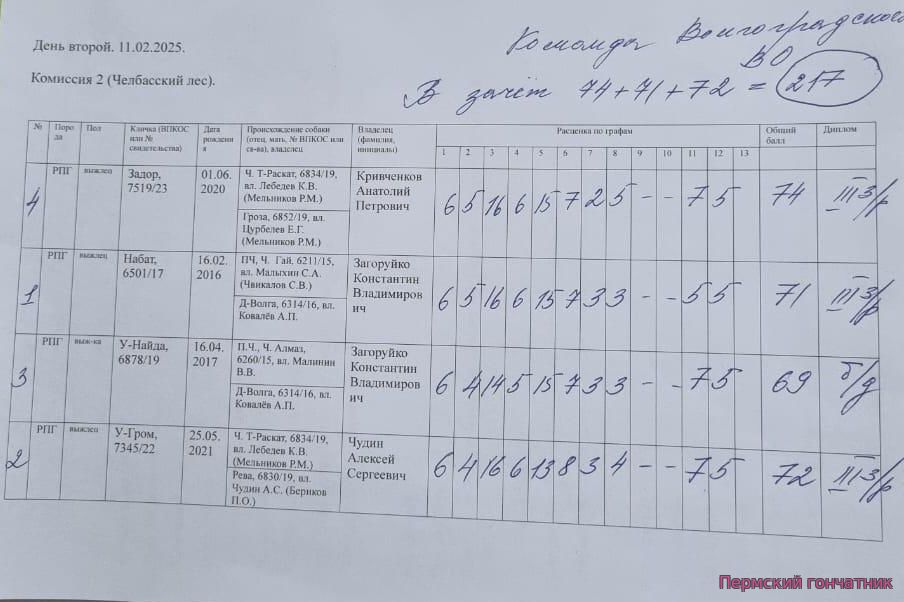 День второй. 11.02.2025.
Команда Волгоградского
ВО
Комиссия 2 (Челбасский лес).
В зачёт 74+71+72 = 217
№ Поро да Пол Кличка (ВПКОС или № свидетельства) Дата рождени я Происхождение собаки (отец, мать, № ВПКОС или св-ва), владелец Владелец (фамилия, инициалы) Расценка по графам Общий балл Диплом
1 2 3 4 5 6 7 8 9 10 11 12 13
4 РПГ выжлец Задор, 7519/23 01.06. 2020 Ч. Т-Раскат, 6834/19, вл. Лебедев К.В. (Мельников Р.М.) Кривченков Анатолий Петрович 6 5 16 6 15 7 2 5 - - 7 5 74 III з/р
Гроза, 6852/19, вл. Цурбелев Е.Г. (Мельников Р.М.)
1 РПГ выжлец Набат, 6501/17 16.02. 2016 ПЧ, Ч. Гай, 6211/15, вл. Малыхин С.А. (Чвикалов С.В.) Загоруйко Константин Владимиров ич 6 5 16 6 15 7 3 3 - - 5 5 71 III з/р
Д-Волга, 6314/16, вл. Ковалёв А.П.
3 РПГ выж-ка У-Найда, 6878/19 16.04. 2017 П.Ч., Ч. Алмаз, 6260/15, вл. Малинин В.В. Загоруйко Константин Владимиров ич 6 4 14 5 15 7 3 3 - - 7 5 69 б/д
Д-Волга, 6314/16, вл. Ковалёв А.П.
2 РПГ выжлец У-Гром, 7345/22 25.05. 2021 Ч. Т-Раскат, 6834/19, вл. Лебедев К.В. (Мельников Р.М.) Чудин Алексей Сергеевич 6 4 16 6 13 8 3 4 - - 7 5 72 III з/р
Рева, 6830/19, вл. Чудин А.С. (Берников П.О.)
Пермский гончатник